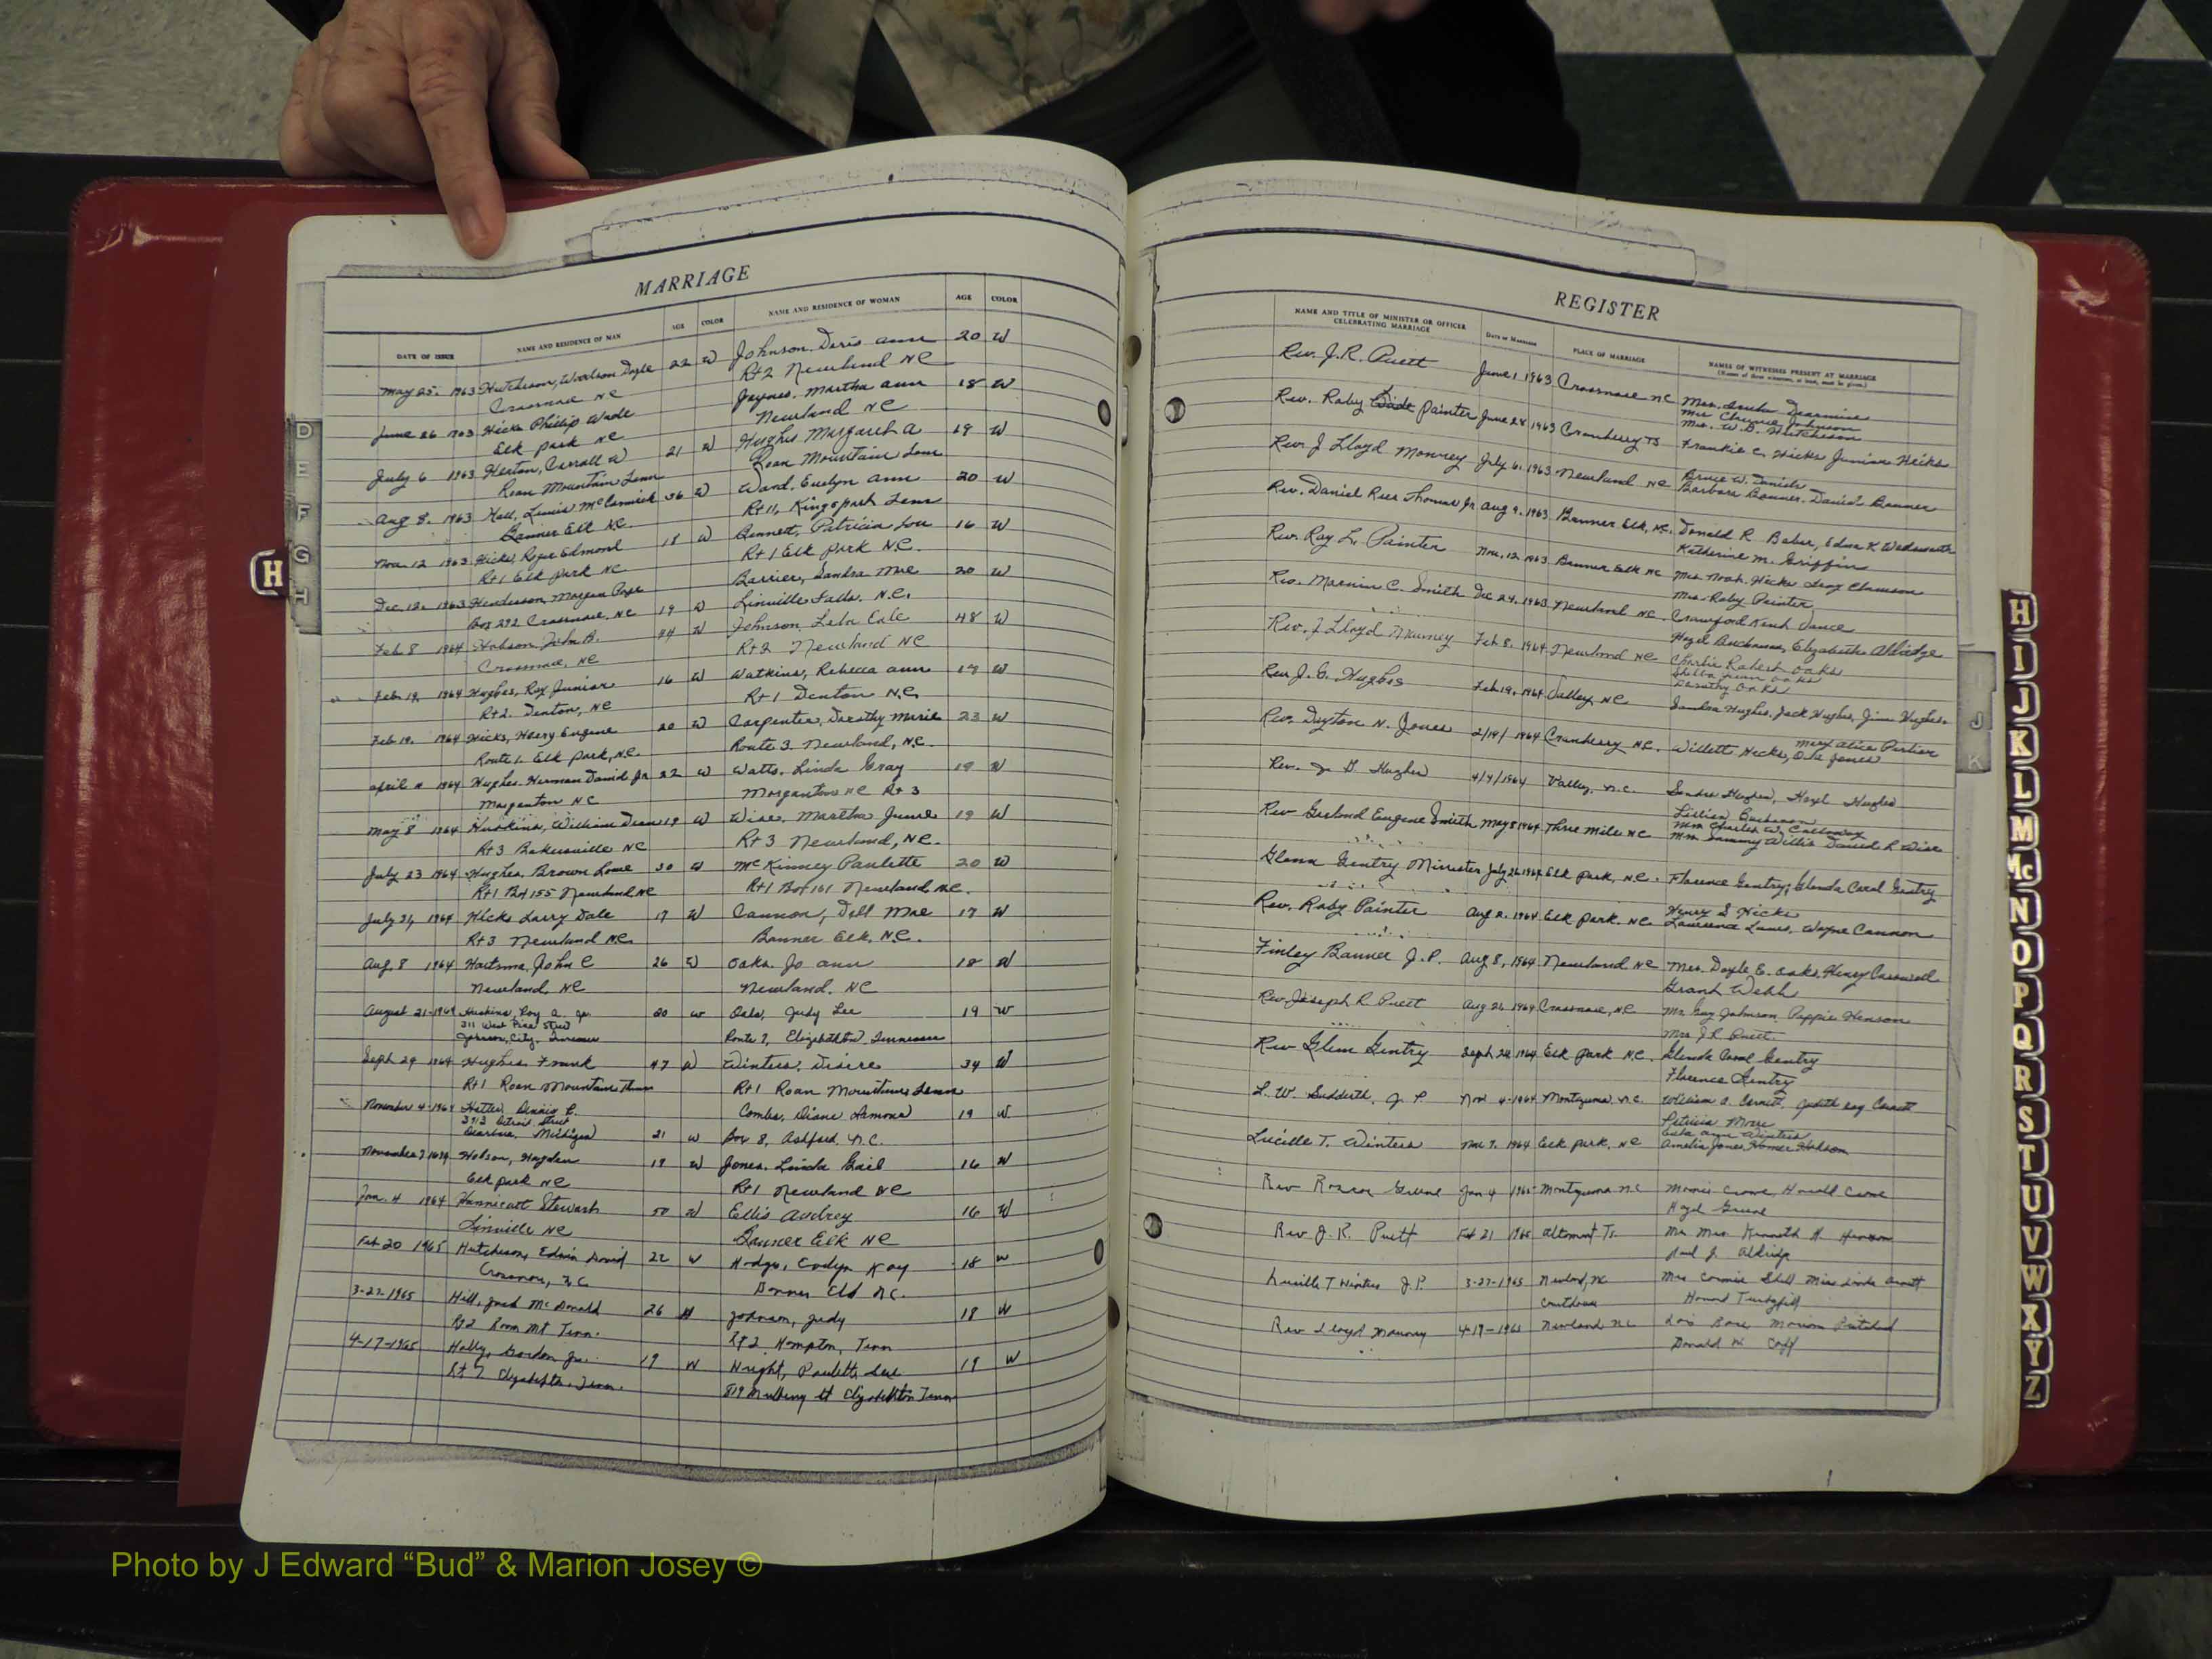 MARRIAGE
DATE OF ISSUE NAME AND RESIDENCE OF MAN AGE COLOR NAME AND RESIDENCE OF WOMAN AGE COLOR
May 25. 1963 Hutcheson, Woodson Doyle 22 W Johnson. Doris Ann 20 W
Crossnore NC Rt 2 Newland NC
June 26 1963 Hicks Phillip Wade Jaynes. Martha Ann 18 W
Elk Park NC Newland NC
July 6 1963 Carroll W 21 W Hughes Margaret A 19 W
Roan Mountain Tenn Roan Mountain Tenn
Aug 8. 1963 Hall, McCormick 36 W Ward. Evelyn Ann 20 W
Banner Elk NC. Rt 11, Kingsport Tenn
Nov 12 1963 Hicks, Roger Edmond 18 W Bennett, Patricia Lou 16 W
Rt 1 Elk Park NC Rt 1 Elk Park N.C.
Dec. 12. 1963 Henderson, Morgan 19 W Barrier, Sandra Mae 20 W
Box 292 Crossnore, NC Linville Falls. N.C.
Feb 8 1964 Hobson John B. W Johnson, 48 W
Crossnore, NC Rt 2 Newland NC
Feb 19. 1964 Hughes, Roy Junior 16 W Watkins, Rebecca Ann 17 W
Rt 2. Denton, NC Rt 1 Denton N.C.
Feb 19. 1964 Hicks, Eugene 20 W Carpenter, Dorothy Marie 23 W
Route 1. Elk Park, N.C. Route 3. Newland, N.C.
April 1964 Hughes. Herman David Jr 22 W Watts. Linda Gray 19 W
Morganton NC Morganton NC Rt 3
May 8 1964 Huskins, William Dean 19 W Wise. Martha 19 W
Rt 3 Bakersville NC Rt 3 Newland, NC.
July 23 1964 Hughes, Brown 30 W McKinney Paulette 20 W
Rt 1 Box 155 Newland NC Rt 1 Box 161 Newland, NC.
July 31, 1964 Hicks Larry Dale 17 W Cannon, Dell Mae 17 W
Rt 3 Newland NC Banner Elk, N.C.
Aug 8 1964 Hartsma, John C 26 W Oaks. Jo Ann 18 W
Newland, NC Newland. NC
August 21-1964 Huskins, Roy A. Jr. 20 W Judy Lee 19 W
311 West Pine Street
Johnson City, Tennessee Route 7, Elizabethton Tennessee
Sept 29 1964 Hughes Frank 47 W Winters, 34 W
Rt 1 Roan Mountain Tenn Rt 1 Roan Mountain, Tenn
November 4-1964 Dennis Combs, Diane 19 W
3913 Detroit Street
Dearborn, Michigan 21 W Box 8, Ashford, N.C.
November 7 Hobson, Hayden 19 W Jones. Linda Gail 16 W
Elk Park NC Rt 1 Newland NC
Jan. 4 1964 Hunnicutt Stewart 50 W Ellis Audrey 16 W
Linville NC Banner Elk NC
Feb 20 1965 Hutcheson, Edwin David 22 W Hodge, Evelyn Kay 18 W
Crossnore, N.C Banner Elk N.C.
3-27-1965 Hill, Jack McDonald 26 W Johnson, Judy 18 W
Rt 2 Roan Mt Tenn. Rt 2 Hampton, Tenn
4-17-1965 Holly, Gordon Jr. 19 W Wright, Paulette 19 W
Rt 7 Elizabethton. Tenn. 819 Mulberry St Elizabethton Tenn
D
E
F
G
H
H
REGISTER
NAME AND TITLE OF MINISTER OR OFFICER CELEBRATING MARRIAGE DATE OF MARRIAGE PLACE OF MARRIAGE NAMES OF WITNESSES PRESENT AT MARRIAGE
(Names of three witnesses, at least, must be given.)
Rev. J.R. Puett June 1 1963 Crossnore NC
Mrs. Clarence Johnson
Mrs. W. B. Hutcheson
Rev. Raby Painter June 28 1963 Cranberry TS Frankie C. Hicks Junior Hicks
Rev. J Lloyd Mowrey July 6. 1963 Newland NC Bruce W. Daniels
Barbara Banner. Daniel Banner
Rev. Daniel Rees Thomas Jr Aug 9. 1963 Banner Elk, NC. Donald R. Baker, Edna K Wadsworth
Katherine M. Griffin
Rev. Ray L. Painter Nov. 12 1963 Banner Elk NC Mrs. Noah. Hicks
Mrs. Raby Painter
Rev. C. Smith Dec 24. 1963 Newland NC. Crawford Vance
Hazel Buchanan, Elizabeth Aldridge
Rev. J Lloyd Mowrey Feb 8. 1964 Newland NC Charlie Robert Oaks
Dorothy Oaks
Rev J. G. Hughes Feb 19. 1964 Valley NC Sandra Hughes, Jack Hughes,
Rev. Dayton N. Jones 2/19/ 1964 Cranberry NC. Willett Hicks, Mary Alice
Rev. J G Hughes 4/4/1964 Valley, N.C. Sandra Hughes, Hazel Hughes
Lillian Buchanan
Rev Garland Eugene Smith May 8 1964 Three Mile NC Mrs Charles W. Calloway
Mrs Sammy Willis Daniel R Wise
Glenn Gentry Minister July 26 1964 Elk Park, N.C. Florence Gentry, Glenda Carol Gentry
Rev. Raby Painter Aug 2. 1964 Elk Park. NC Henry S Hicks
Lawrence Lunes, Wayne Cannon
Finley Banner J.P. Aug 8, 1964 Newland NC Mrs. Doyle E. Oaks, Henry
Grant Webb
Rev. Joseph R Puett Aug 26 1964 Crossnore, NC Mrs Guy Johnson
Mrs J R Puett.
Rev Glenn Gentry Sept 29 1964 Elk Park N.C. Glenda Carol Gentry
Florence Gentry
L. W. Suddreth, J. P. Nov 4-1964 Montezuma N.C. William A. Cornett,
Patricia
Lucille T. Winters Nov 7. 1964 Elk Park, NC Ann Winters
Amelia Jones, Homer Hobson
Rev Roscoe Greene Jan 4 1965 Montezuma NC Crowe, Harold Crowe
Hazel Greene
Rev J. R. Puett Feb 21 1965 Altamont Ts. Mr Mrs. Kenneth
J. Aldridge
Lucille T Winters J.P. 3-27-1965 Newland, NC
Courthouse Howard
Rev Lloyd Mowrey 4-17-1965 Newland NC
Donald
J
K
H
I
J
K
L
M
Mc
N
O
P
Q
R
S
T
U
V
W
X
Y
Z
Photo by J Edward “Bud” & Marion Josey ©